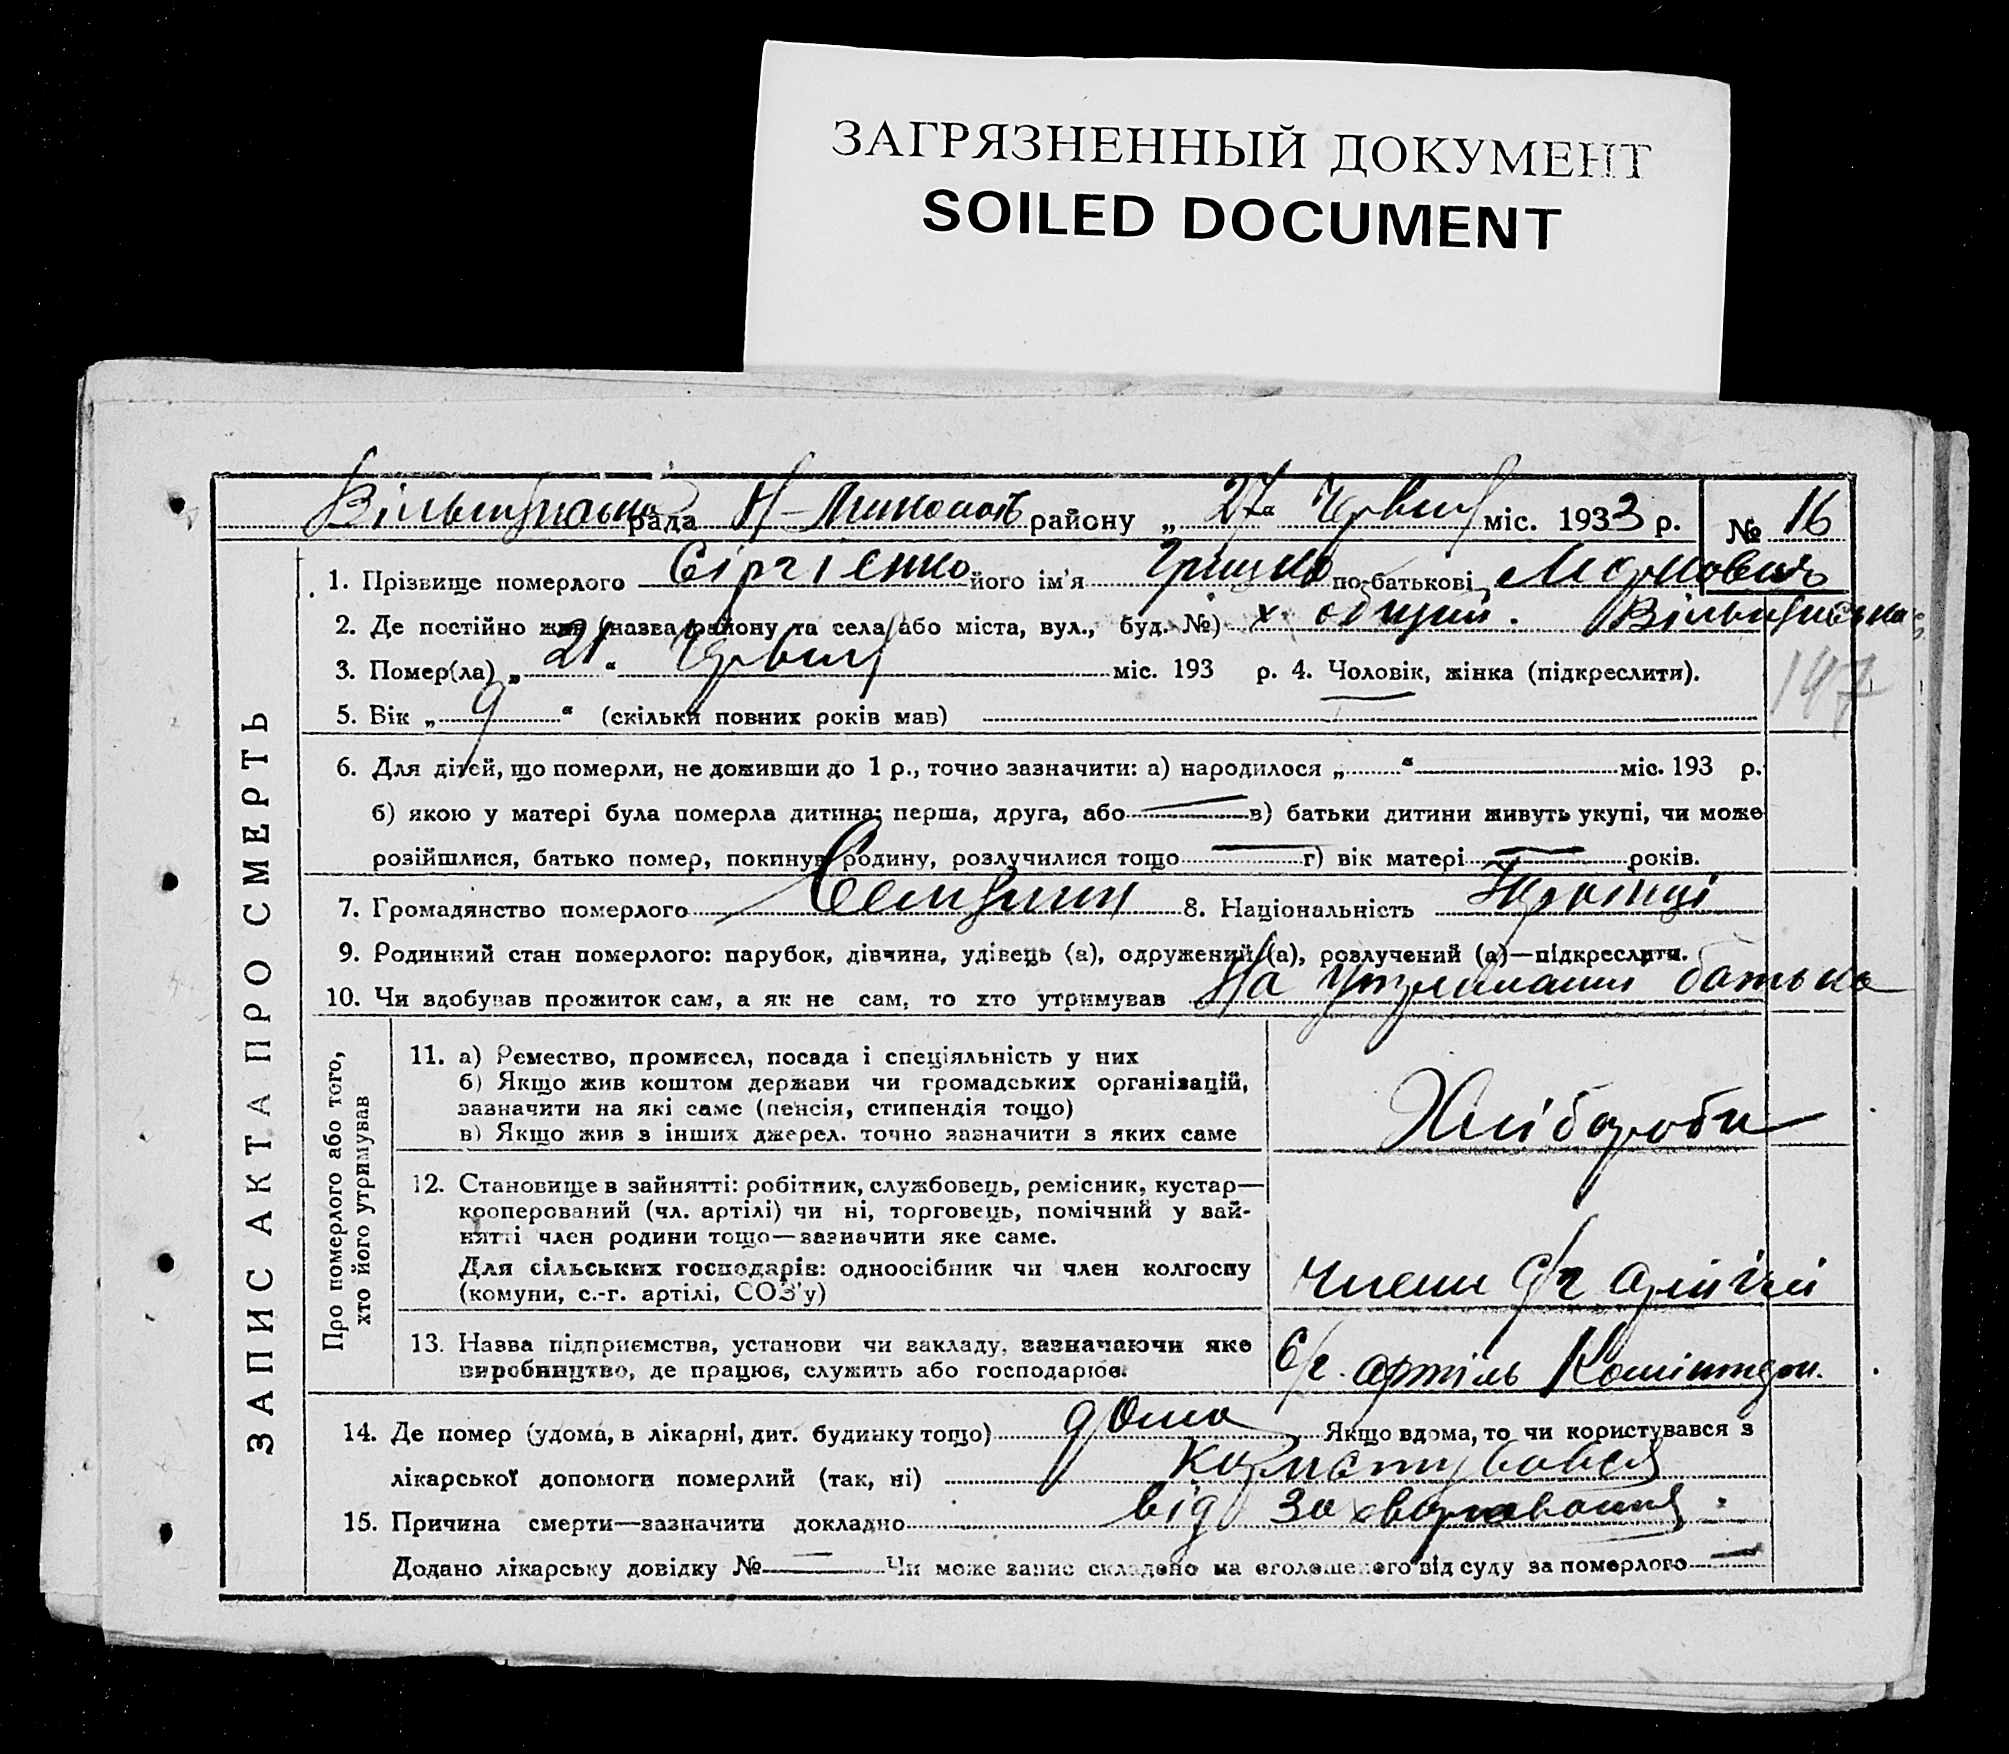 ЗАГРЯЗНЕННЫЙ ДОКУМЕНТ
SOILED DOCUMENT
рада Н- району „27 Червня міс. 1933 р. № 16
1. Прізвище померлого Сіргієнко його ім'я Грицко по-батькові Маркович
2. Де постійно жив (назва району та села або міста, вул., буд. №) х. общий.
3. Помер(ла) „21“ Червня міс. 193 р. 4. Чоловік, жінка (підкреслити).
147
5. Вік „9“ (скільки повних років мав)
6. Для дітей, що померли, не доживши до 1 р., точно зазначити: а) народилося „ “ міс. 193 р.
б) якою у матері була померла дитина: перша, друга, або — в) батьки дитини живуть укупі, чи може
розійшлися, батько помер, покинув родину, розлучилися тощо — г) вік матері — років.
7. Громадянство померлого 8. Національність
9. Родинний стан померлого: парубок, дівчина, удівець (а), одружений (а), розлучений (а)—підкреслити.
10. Чи здобував прожиток сам, а як не сам, то хто утримував На утриманні батька
ЗАПИС АКТА ПРО СМЕРТЬ
Про померлого або того,
хто його утримував
11. а) Ремество, промисел, посада і спеціяльність у них
б) Якщо жив коштом держави чи громадських організацій,
зазначити на які саме (пенсія, стипендія тощо)
в) Якщо жив з інших джерел. точно зазначити з яких саме
Хліборобы
12. Становище в зайнятті: робітник, службовець, ремісник, кустар—
кооперований (чл. артілі) чи ні, торговець, помічний у зай-
нятті член родини тощо—зазначити яке саме.
Для сільських господарів: одноосібник чи член колгоспу
(комуни, с.-г. артілі, СОЗ'у)
член с/г артілі
13. Назва підприємства, установи чи закладу, зазначаючи яке
виробництво, де працює, служить або господарює.
с/г. артіль Комінтерн.
14. Де помер (удома, в лікарні, дит. будинку тощо) дома Якщо вдома, то чи користувався з
лікарської допомоги померлий (так, ні) користувався
15. Причина смерти—зазначити докладно від захворювання.
Додано лікарську довідку № — Чи може запис складено на оголошеного від суду за померлого —